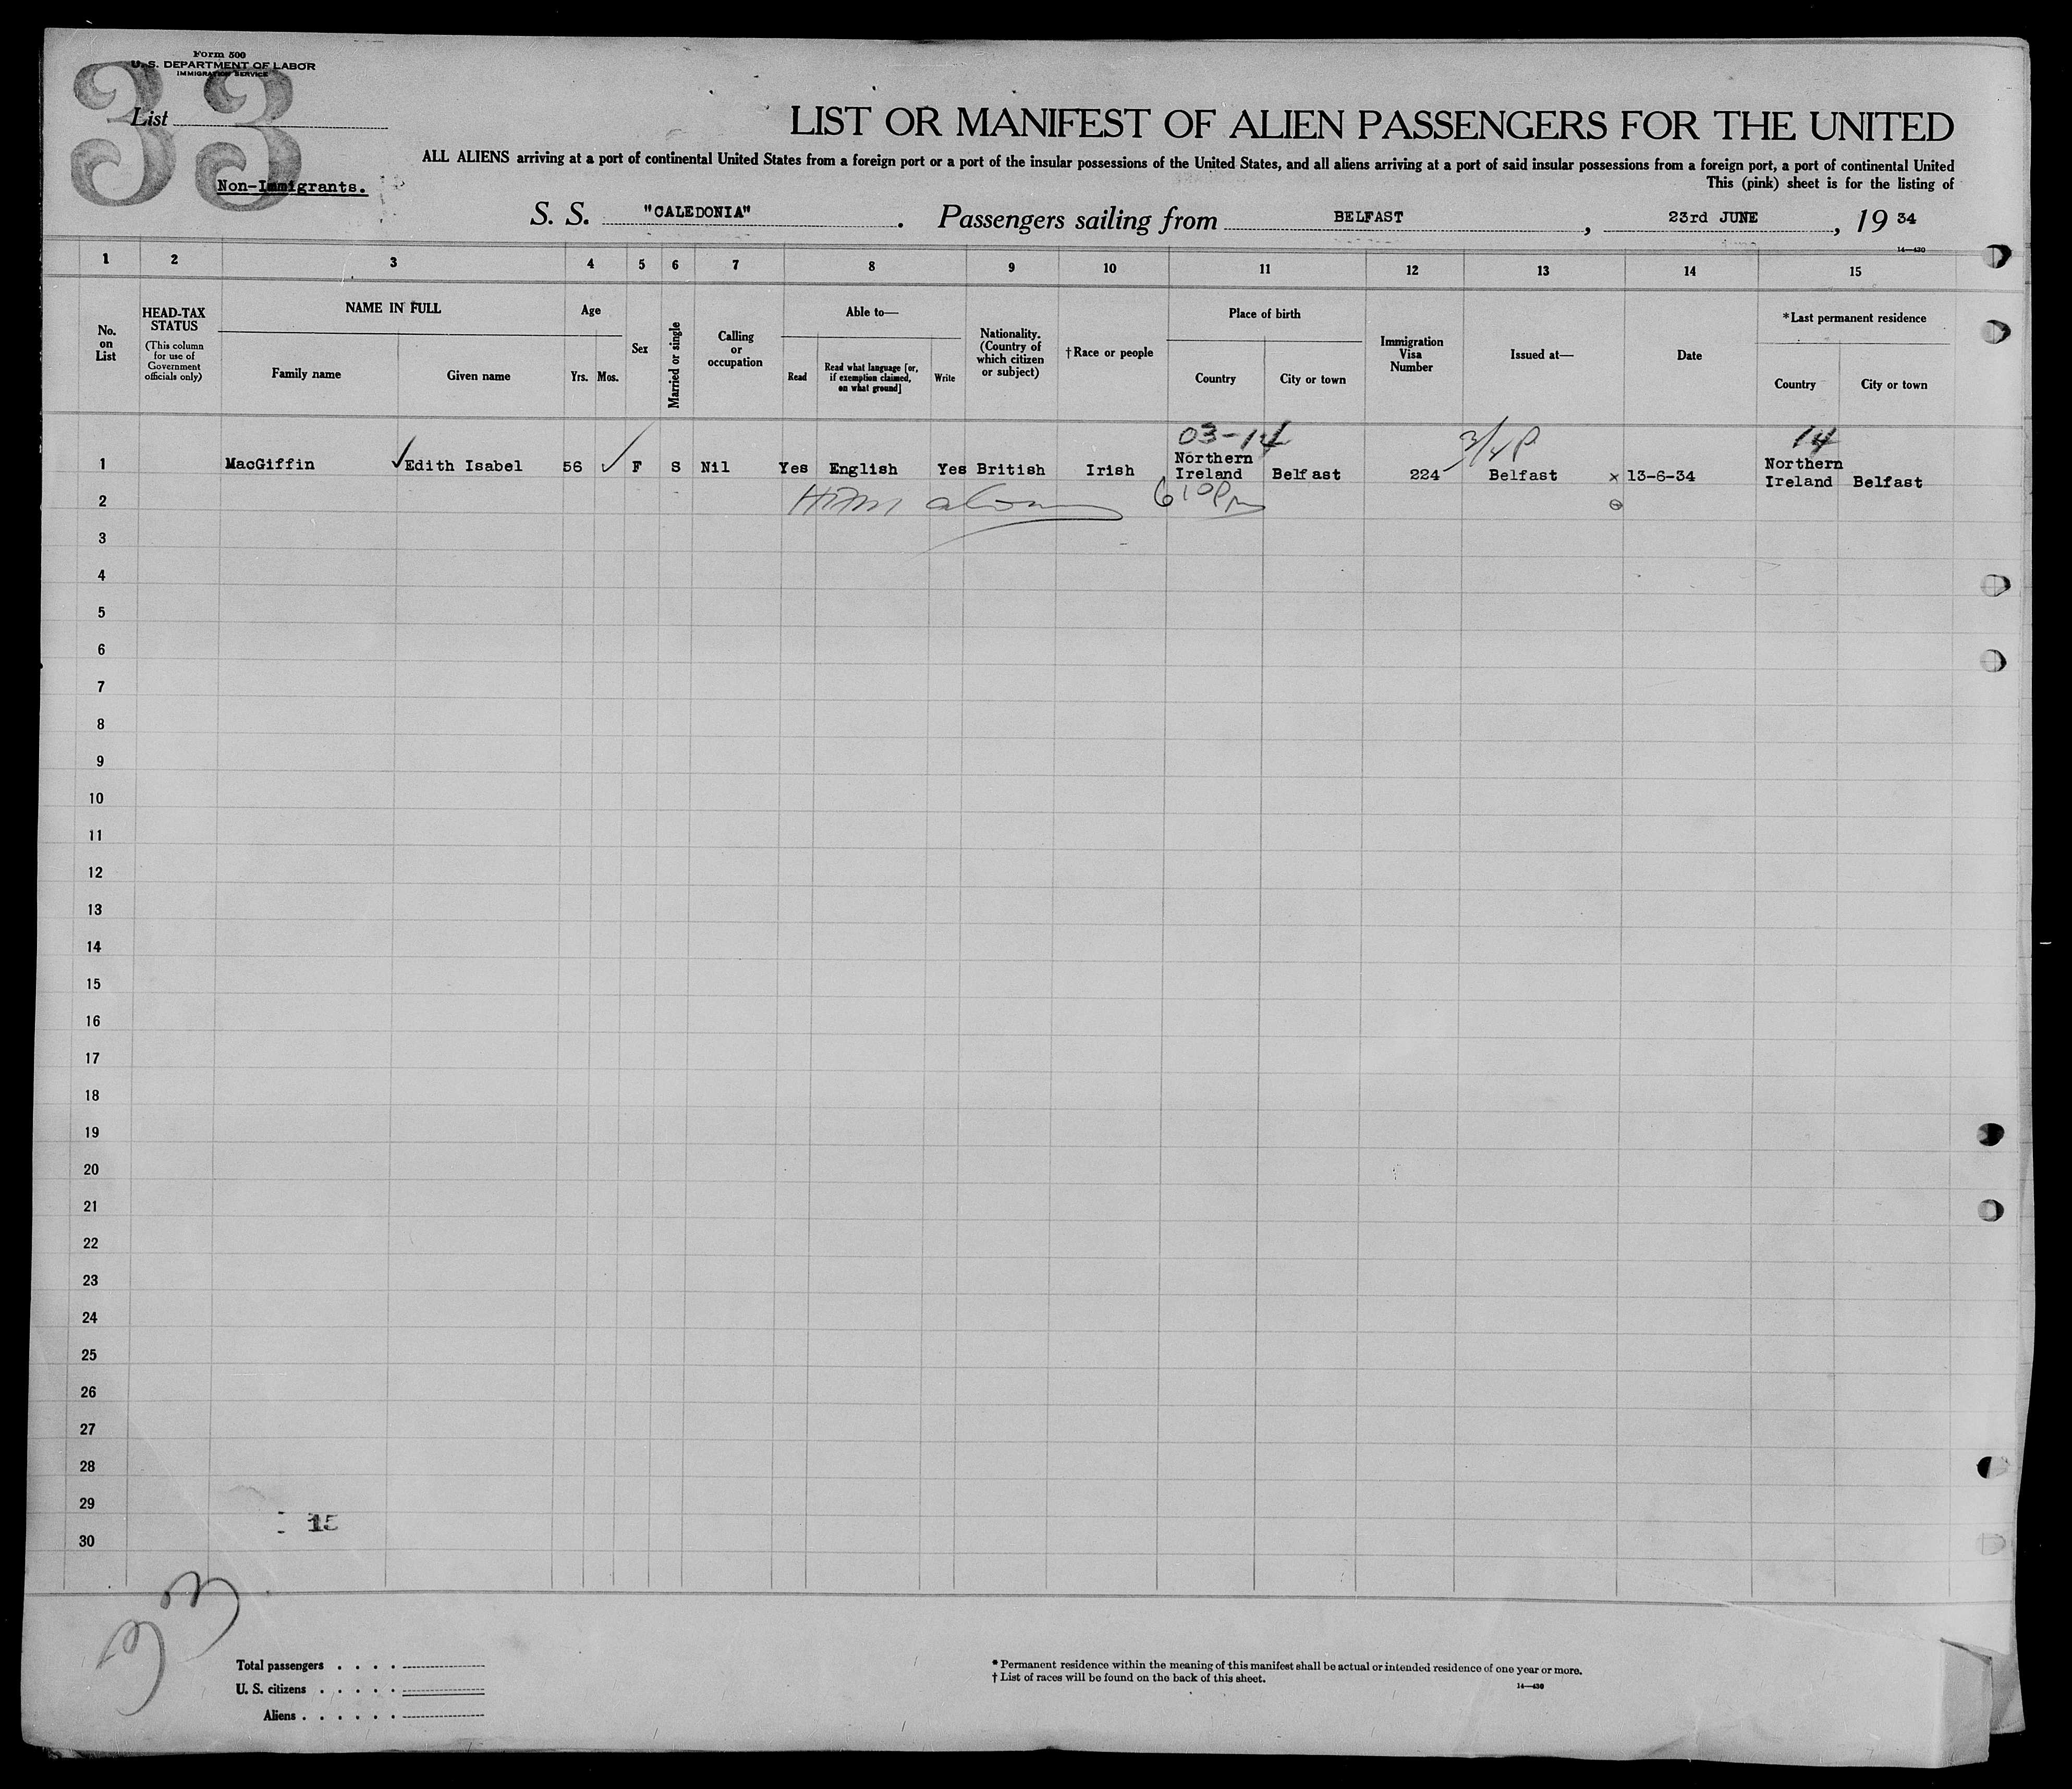 Form 500
U. S. DEPARTMENT OF LABOR
IMMIGRATION SERVICE
33
List
Non-Immigrants.
LIST OR MANIFEST OF ALIEN PASSENGERS FOR THE UNITED
ALL ALIENS arriving at a port of continental United States from a foreign port or a port of the insular possessions of the United States, and all aliens arriving at a port of said insular possessions from a foreign port, a port of continental United
This (pink) sheet is for the listing of
S. S. "CALEDONIA". Passengers sailing from BELFAST, 23rd JUNE, 19 34
14—430
1 2 3 4 5 6 7 8 9 10 11 12 13 14 15
No. on List
HEAD-TAX STATUS
(This column for use of Government officials only)
NAME IN FULL
Family name Given name
Age
Yrs. Mos.
Sex
Married or single
Calling or occupation
Able to—
Read
Read what language [or, if exemption claimed, on what ground]
Write
Nationality. (Country of which citizen or subject)
†Race or people
Place of birth
Country City or town
Immigration Visa Number
Issued at—
Date
*Last permanent residence
Country City or town
03-14 14
1 MacGiffin ✓Edith Isabel 56 ✓ F S Nil Yes English Yes British Irish Northern Ireland Belfast 224 Belfast x 13-6-34 Northern Ireland Belfast
2 6 10 Pm
3
4
5
6
7
8
9
10
11
12
13
14
15
16
17
18
19
20
21
22
23
24
25
26
27
28
29
15
30
33
Total passengers . . . .
U. S. citizens . . . . .
Aliens . . . . . .
* Permanent residence within the meaning of this manifest shall be actual or intended residence of one year or more.
† List of races will be found on the back of this sheet.
14—430